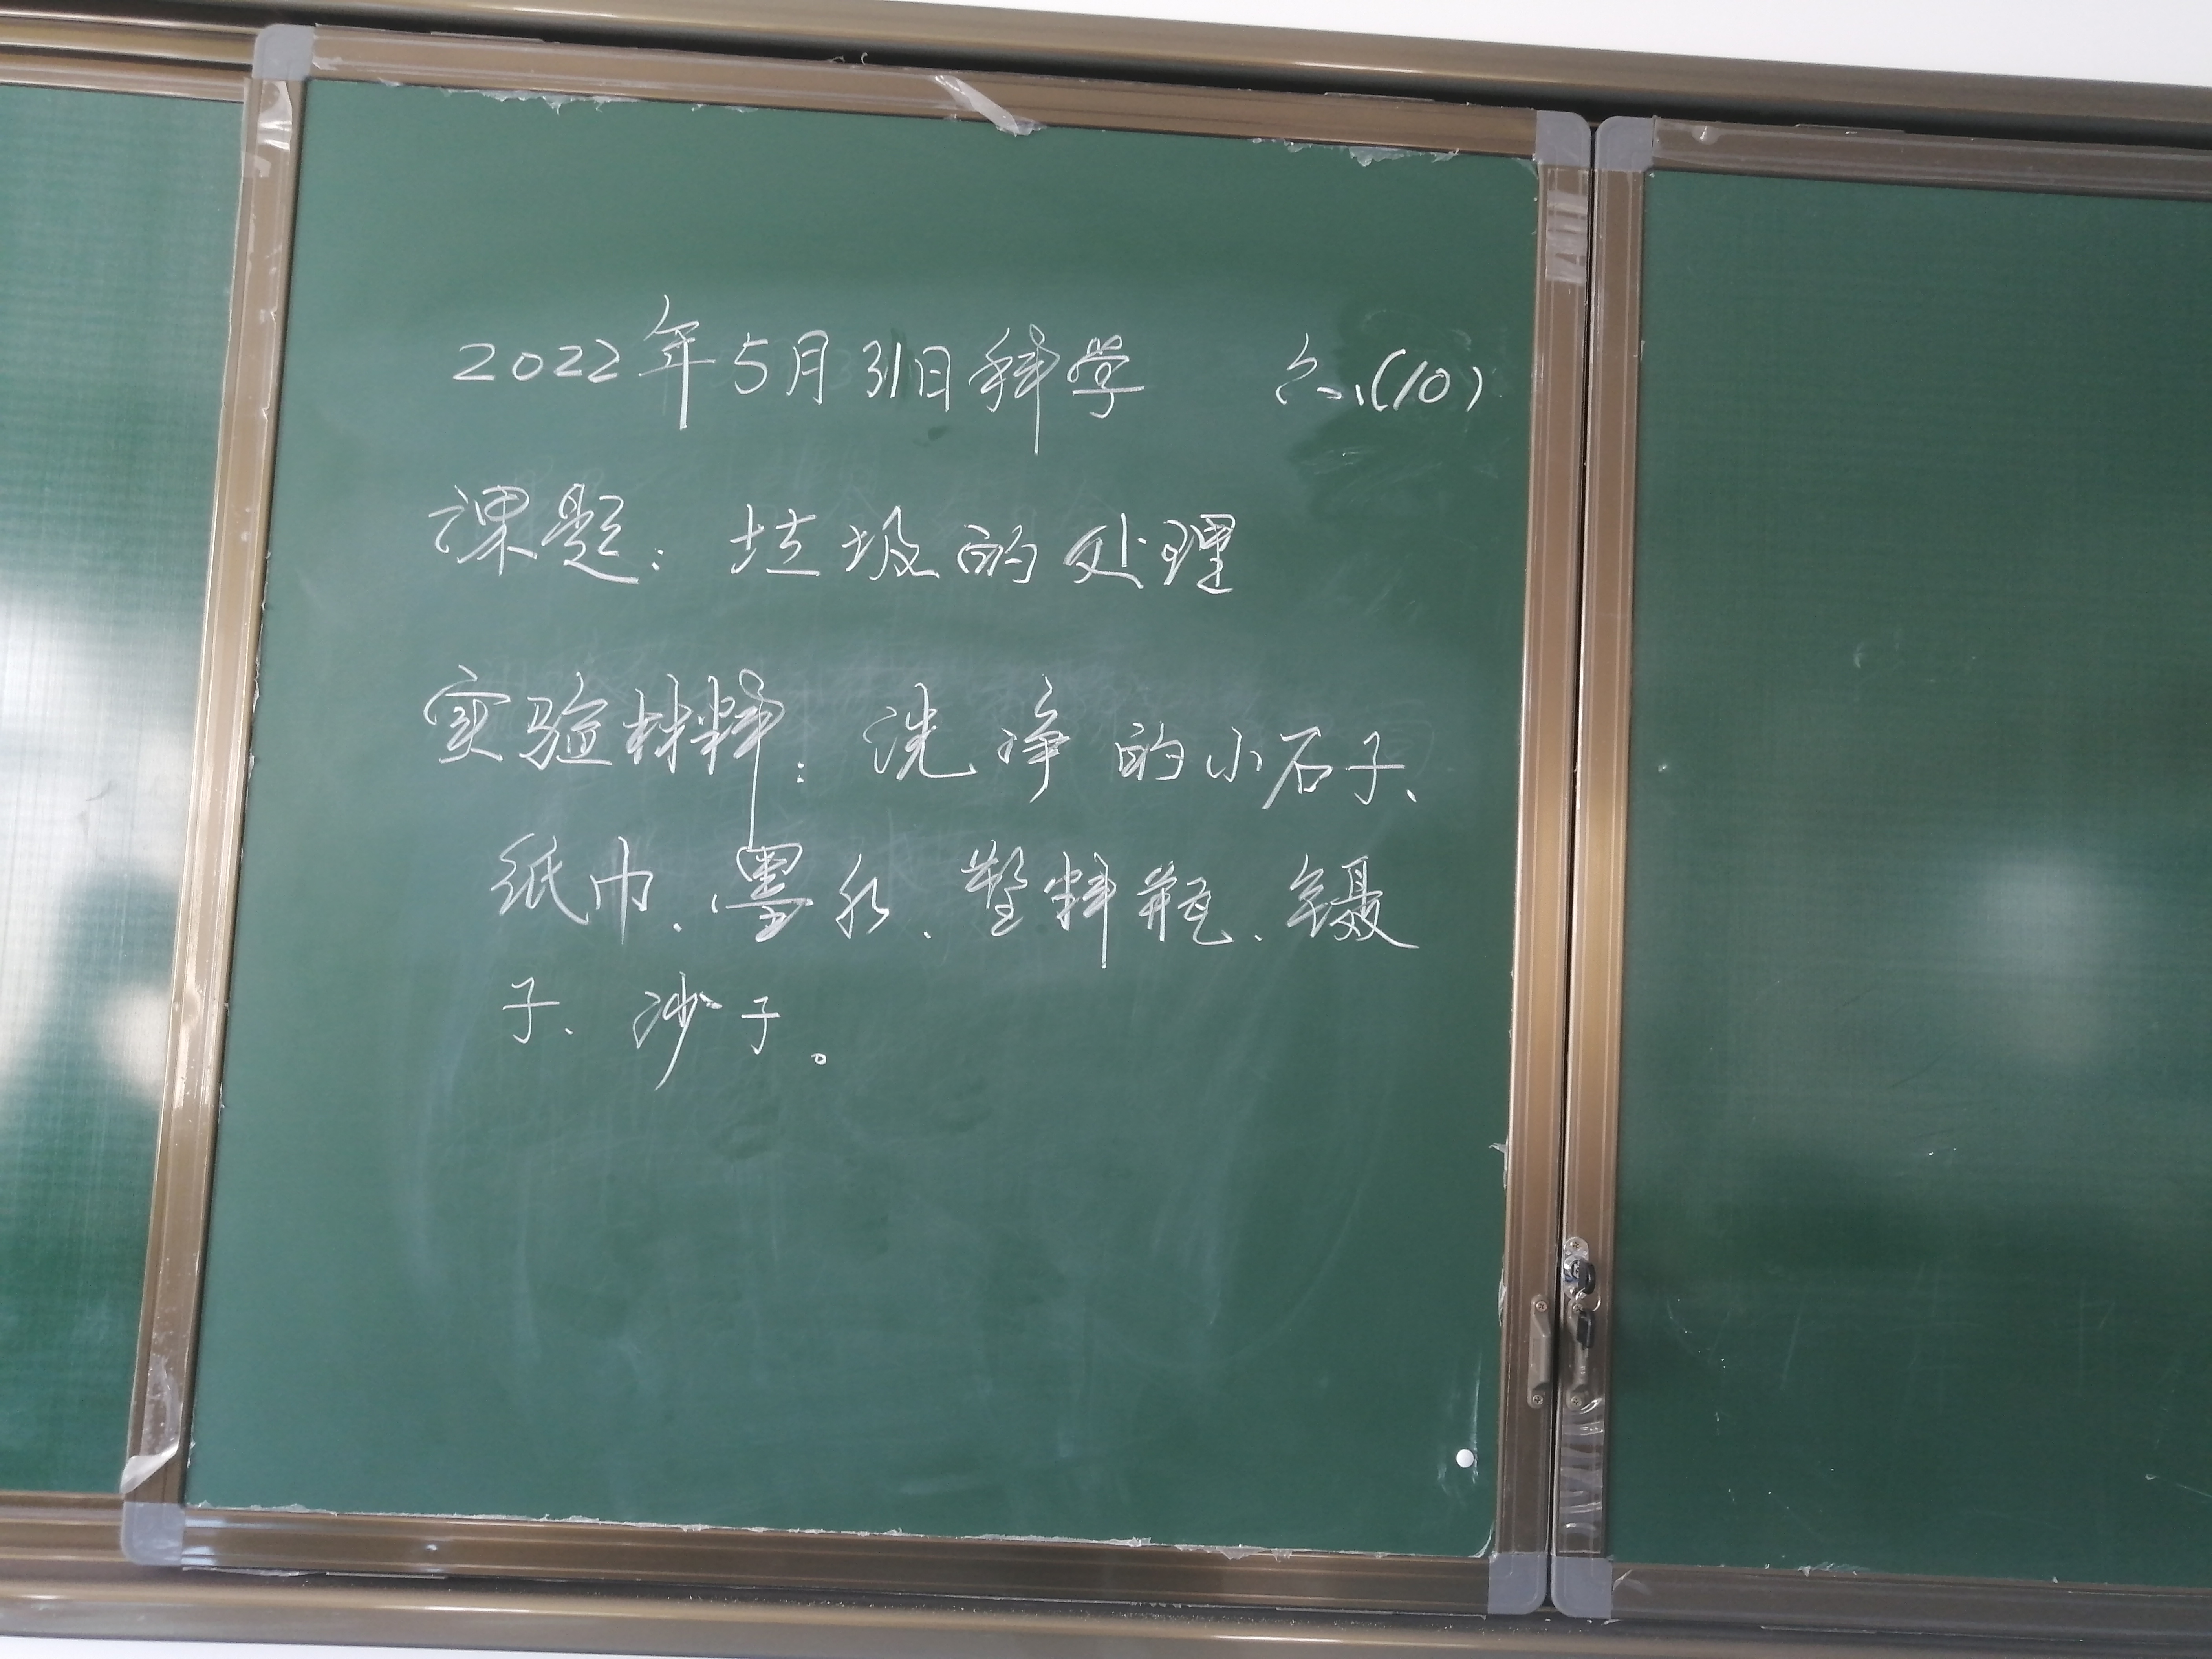 2022年5月31日科学 六(10)
课题：垃圾的处理
实验材料：洗净的小石子、
纸巾、墨水、塑料瓶、镊
子、沙子。